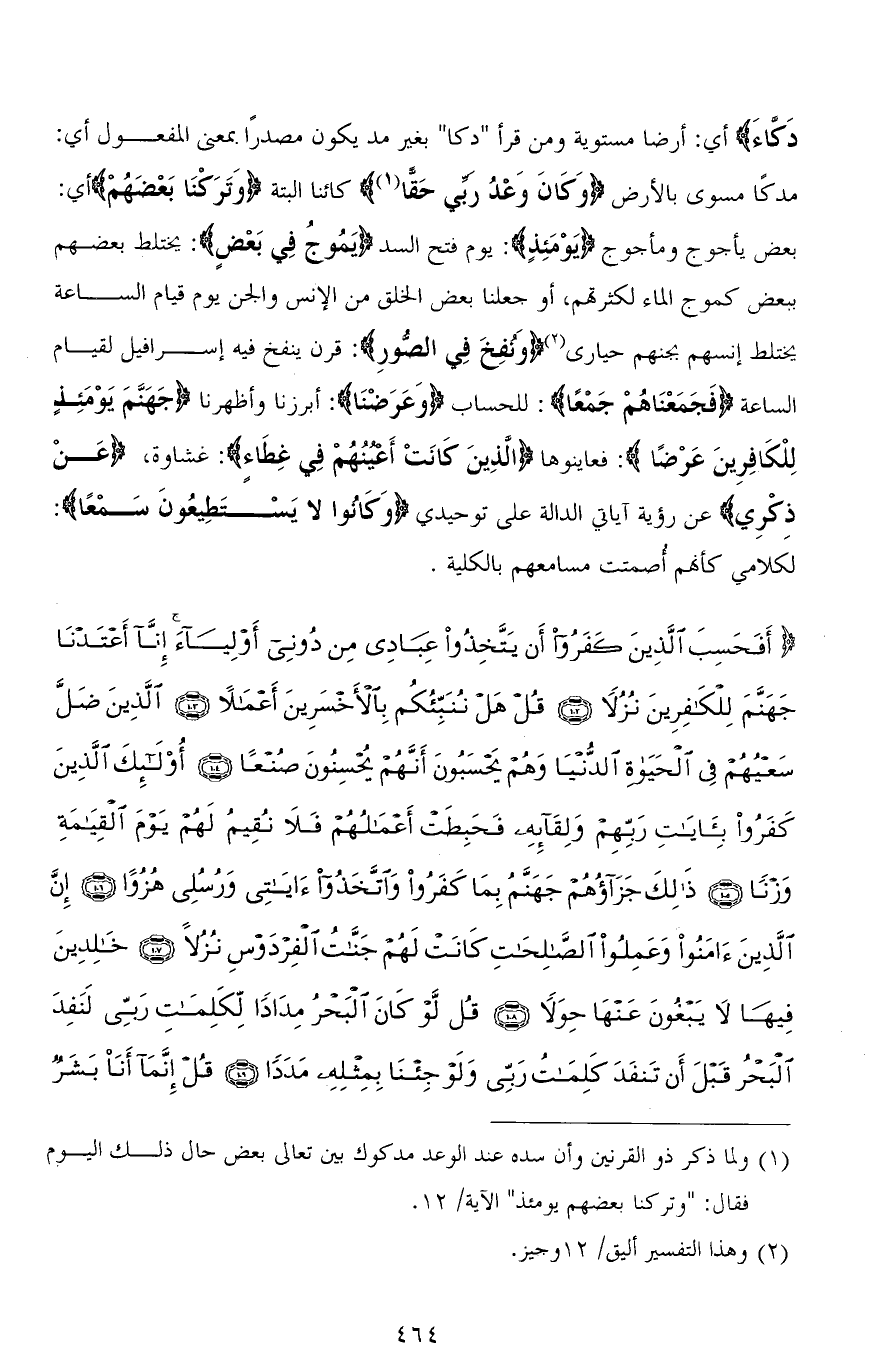 دَكَّاءَ﴾ أي: أرضا مستوية ومن قرأ "دكا" بغير مد يكون مصدرًا بمعنى المفعول أي:
مدكًا مسوى بالأرض ﴿وَكَانَ وَعْدُ رَبِّي حَقًّا(١)﴾ كائنا البتة ﴿وَتَرَكْنَا بَعْضَهُمْ﴾أي:
بعض يأجوج ومأجوج ﴿يَوْمَئِذٍ﴾: يوم فتح السد ﴿يَمُوجُ فِي بَعْضٍ﴾: يختلط بعضهم
ببعض كموج الماء لكثرتهم، أو جعلنا بعض الخلق من الإنس والجن يوم قيام الساعة
يختلط إنسهم بجنهم حيارى(٢)﴿وَنُفِخَ فِي الصُّورِ﴾: قرن ينفخ فيه إسرافيل لقيام
الساعة ﴿فَجَمَعْنَاهُمْ جَمْعًا﴾ : للحساب ﴿وَعَرَضْنَا﴾: أبرزنا وأظهرنا ﴿جَهَنَّمَ يَوْمَئِذٍ
لِلْكَافِرِينَ عَرْضًا ﴾: فعاينوها ﴿الَّذِينَ كَانَتْ أَعْيُنُهُمْ فِي غِطَاءٍ﴾: غشاوة، ﴿عَنْ
ذِكْرِي﴾ عن رؤية آياتي الدالة على توحيدي ﴿وَكَانُوا لا يَسْتَطِيعُونَ سَمْعًا﴾:
لكلامي كأنهم أُصمتت مسامعهم بالكلية .
﴿ أَفَحَسِبَ ٱلَّذِينَ كَفَرُوٓاْ أَن يَتَّخِذُواْ عِبَادِى مِن دُونِىٓ أَوْلِيَآءَ ۚ إِنَّآ أَعْتَدْنَا
جَهَنَّمَ لِلْكَٰفِرِينَ نُزُلًا ﴿١٠٢﴾ قُلْ هَلْ نُنَبِّئُكُم بِٱلْأَخْسَرِينَ أَعْمَٰلًا ﴿١٠٣﴾ ٱلَّذِينَ ضَلَّ
سَعْيُهُمْ فِى ٱلْحَيَوٰةِ ٱلدُّنْيَا وَهُمْ يَحْسَبُونَ أَنَّهُمْ يُحْسِنُونَ صُنْعًا ﴿١٠٤﴾ أُوْلَٰٓئِكَ ٱلَّذِينَ
كَفَرُواْ بِـَٔايَٰتِ رَبِّهِمْ وَلِقَآئِهِۦ فَحَبِطَتْ أَعْمَٰلُهُمْ فَلَا نُقِيمُ لَهُمْ يَوْمَ ٱلْقِيَٰمَةِ
وَزْنًا ﴿١٠٥﴾ ذَٰلِكَ جَزَآؤُهُمْ جَهَنَّمُ بِمَا كَفَرُواْ وَٱتَّخَذُوٓاْ ءَايَٰتِى وَرُسُلِى هُزُوًا ﴿١٠٦﴾ إِنَّ
ٱلَّذِينَ ءَامَنُواْ وَعَمِلُواْ ٱلصَّٰلِحَٰتِ كَانَتْ لَهُمْ جَنَّٰتُ ٱلْفِرْدَوْسِ نُزُلًا ﴿١٠٧﴾ خَٰلِدِينَ
فِيهَا لَا يَبْغُونَ عَنْهَا حِوَلًا ﴿١٠٨﴾ قُل لَّوْ كَانَ ٱلْبَحْرُ مِدَادًا لِّكَلِمَٰتِ رَبِّى لَنَفِدَ
ٱلْبَحْرُ قَبْلَ أَن تَنفَدَ كَلِمَٰتُ رَبِّى وَلَوْ جِئْنَا بِمِثْلِهِۦ مَدَدًا ﴿١٠٩﴾ قُلْ إِنَّمَآ أَنَا۠ بَشَرٌ
(١) ولما ذكر ذو القرنين وأن سده عند الوعد مدكوك بين تعالى بعض حال ذلك اليوم
فقال: "وتركنا بعضهم يومئذ" الآية/ ١٢.
(٢) وهذا التفسير أليق/ ١٢وجيز.
٤٦٤